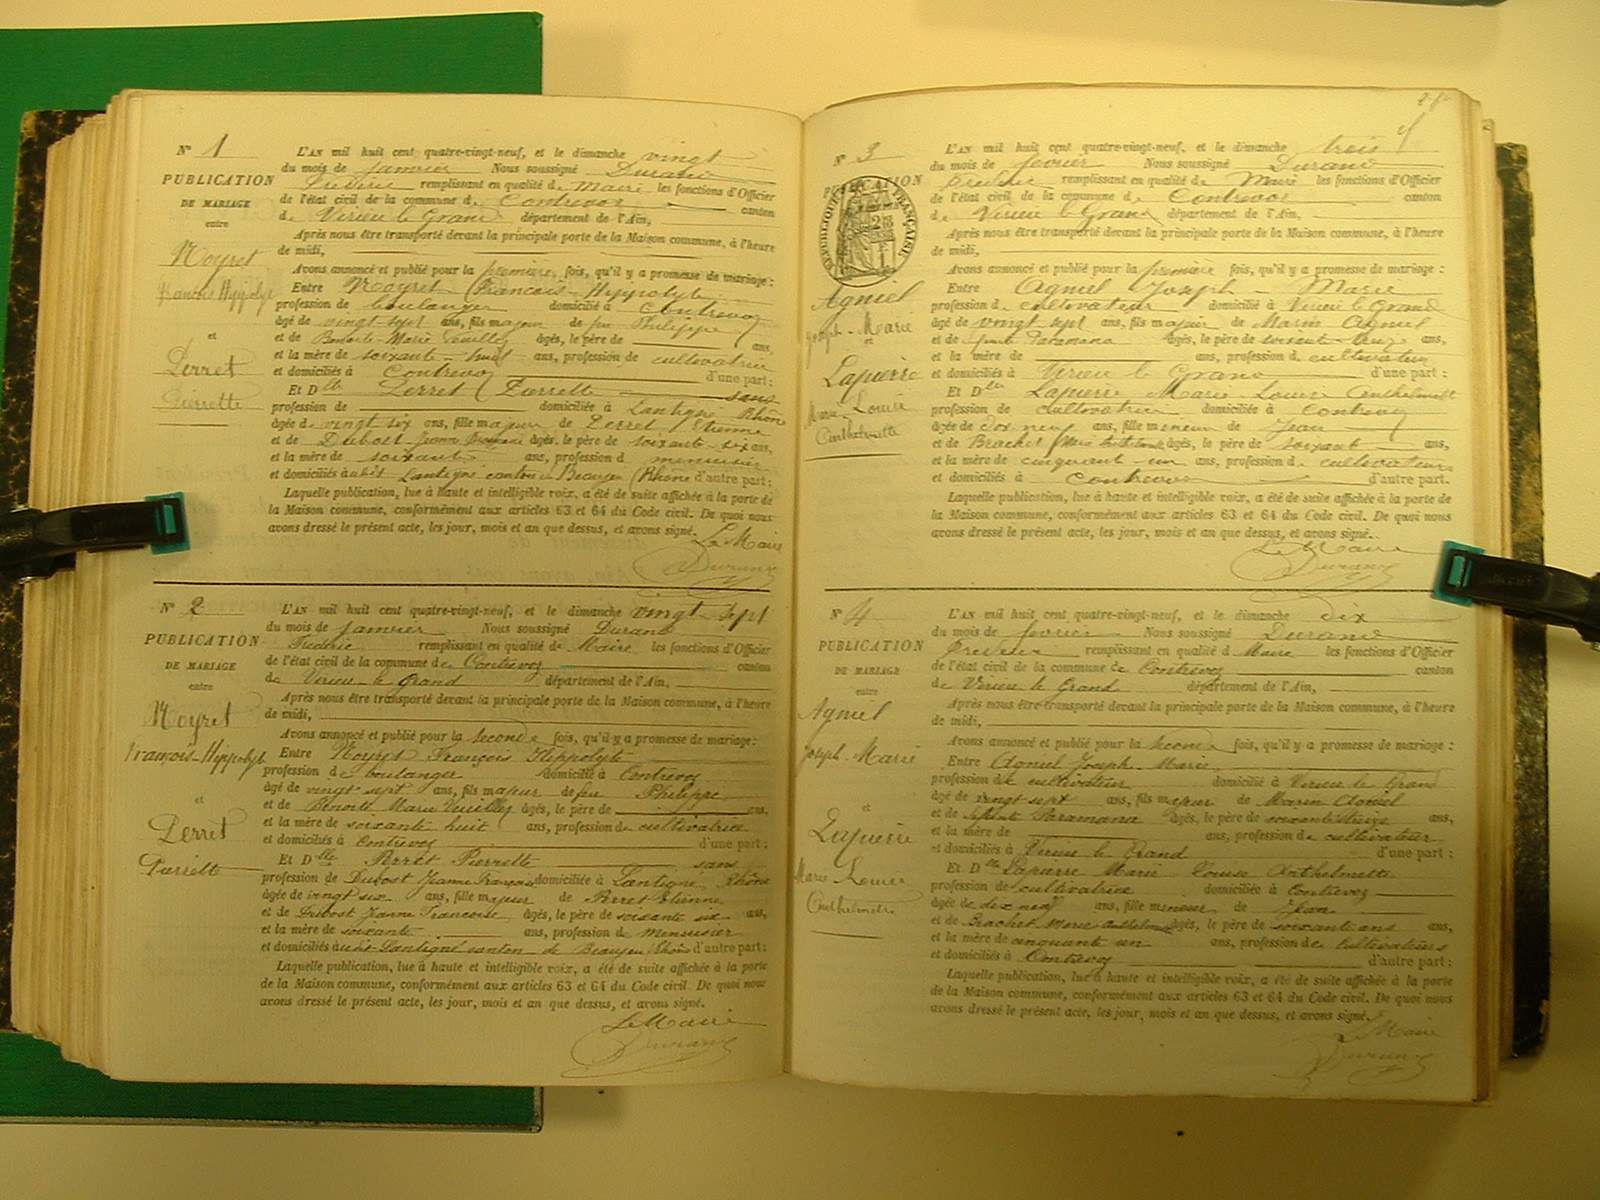 N° 1
PUBLICATION
DE MARIAGE
entre
Noyret
François Hippolyte
et
Perret
Pierrette
L'AN mil huit cent quatre-vingt-neuf, et le dimanche vingt
du mois de janvier Nous soussigné Durand
Frédéric remplissant en qualité de Maire les fonctions d'Officier
de l'état civil de la commune de Contrevoz canton
de Virieu le Grand département de l'Ain,
Après nous être transporté devant la principale porte de la Maison commune, à l'heure
de midi,
Avons annoncé et publié pour la première fois, qu'il y a promesse de mariage :
Entre Noyret François-Hippolyte
profession de boulanger domicilié à Contrevoz
âgé de vingt sept ans, fils majeur de feu Philippe
et de Benoite Marie Vuillez âgés, le père de ans,
et la mère de soixante-huit ans, profession de cultivatrice
et domiciliés à Contrevoz d'une part ;
Et Dlle Perret Pierrette sans
profession de domiciliée à Lantigné Rhône
âgée de vingt six ans, fille majeure de Perret Etienne
et de Dubost Jeanne Françoise âgés, le père de soixante-six ans,
et la mère de soixante ans, profession de menuisier
et domiciliés à udit Lantigné canton de Beaujeu (Rhône) d'autre part ;
Laquelle publication, lue à haute et intelligible voix, a été de suite affichée à la porte de
la Maison commune, conformément aux articles 63 et 64 du Code civil. De quoi nous
avons dressé le présent acte, les jour, mois et an que dessus, et avons signé.
Le Maire
Durand
N° 2
PUBLICATION
DE MARIAGE
entre
Noyret
François-Hippolyte
et
Perret
Pierrette
L'AN mil huit cent quatre-vingt-neuf, et le dimanche vingt sept
du mois de janvier Nous soussigné Durand
Frédéric remplissant en qualité de Maire les fonctions d'Officier
de l'état civil de la commune de Contrevoz canton
de Virieu le Grand département de l'Ain,
Après nous être transporté devant la principale porte de la Maison commune, à l'heure
de midi,
Avons annoncé et publié pour la seconde fois, qu'il y a promesse de mariage :
Entre Noyret François Hippolyte
profession de boulanger domicilié à Contrevoz
âgé de vingt sept ans, fils majeur de feu Philippe
et de Benoite Marie Vuillez âgés, le père de ans,
et la mère de soixante huit ans, profession de cultivatrice
et domiciliés à Contrevoz d'une part ;
Et Dlle Perret Pierrette sans
profession de Dubost Jeanne Françoise domiciliée à Lantigné Rhône
âgée de vingt six ans, fille majeure de Perret Etienne
et de Dubost Jeanne Francoise âgés, le père de soixante six ans,
et la mère de soixante ans, profession de menuisier
et domiciliés à udit Lantigné canton de Beaujeu (Rhône) d'autre part ;
Laquelle publication, lue à haute et intelligible voix, a été de suite affichée à la porte
de la Maison commune, conformément aux articles 63 et 64 du Code civil. De quoi nous
avons dressé le présent acte, les jour, mois et an que dessus, et avons signé.
Le Maire
Durand
N° 3
PUBLICATION
RÉPUBLIQUE FRANÇAISE
Agniel
Joseph-Marie
et
Lapierre
Marie-Louise
Anthelmette
L'AN mil huit cent quatre-vingt-neuf, et le dimanche trois
du mois de février Nous soussigné Durand
Frédéric remplissant en qualité de Maire les fonctions d'Officier
de l'état civil de la commune de Contrevoz canton
de Virieu le Grand département de l'Ain,
Après nous être transporté devant la principale porte de la Maison commune, à l'heure
de midi,
Avons annoncé et publié pour la première fois, qu'il y a promesse de mariage :
Entre Agniel Joseph-Marie
profession de cultivateur domicilié à Virieu le Grand
âgé de vingt-sept ans, fils majeur de Marin Agniel
et de Paramana âgés, le père de soixante ans,
et la mère de ans, profession de cultivateur
et domiciliés à Virieu le Grand d'une part ;
Et Dlle Lapierre Marie Louise Anthelmette
profession de cultivatrice domiciliée à Contrevoz
âgée de dix neuf ans, fille mineure de Jean
et de Brachet Marie Anthelmette âgés, le père de soixante ans,
et la mère de cinquante-un ans, profession de cultivateurs
et domiciliés à Contrevoz d'autre part.
Laquelle publication, lue à haute et intelligible voix, a été de suite affichée à la porte de
la Maison commune, conformément aux articles 63 et 64 du Code civil. De quoi nous
avons dressé le présent acte, les jour, mois et an que dessus, et avons signé.
Le Maire
Durand
N° 4
PUBLICATION
DE MARIAGE
entre
Agniel
Joseph-Marie
et
Lapierre
Marie-Louise
Anthelmette
L'AN mil huit cent quatre-vingt-neuf, et le dimanche dix
du mois de février Nous soussigné Durand
Frédéric remplissant en qualité de Maire les fonctions d'Officier
de l'état civil de la commune de Contrevoz canton
de Virieu le Grand département de l'Ain,
Après nous être transporté devant la principale porte de la Maison commune, à l'heure
de midi,
Avons annoncé et publié pour la seconde fois, qu'il y a promesse de mariage :
Entre Agniel Joseph-Marie
profession de cultivateur domicilié à Virieu le Grand
âgé de vingt sept ans, fils majeur de Marin Agniel
et de Paramana âgés, le père de soixante ans,
et la mère de ans, profession de cultivateur
et domiciliés à Virieu le Grand d'une part ;
Et Dlle Lapierre Marie Louise Anthelmette
profession de cultivatrice domiciliée à Contrevoz
âgée de dix neuf ans, fille mineure de Jean
et de Brachet Marie Anthelmette âgés, le père de soixante ans ans,
et la mère de cinquante un ans, profession de cultivateurs
et domiciliés à Contrevoz d'autre part ;
Laquelle publication, lue à haute et intelligible voix, a été de suite affichée à la porte
de la Maison commune, conformément aux articles 63 et 64 du Code civil. De quoi nous
avons dressé le présent acte, les jour, mois et an que dessus, et avons signé.
Le Maire
Durand